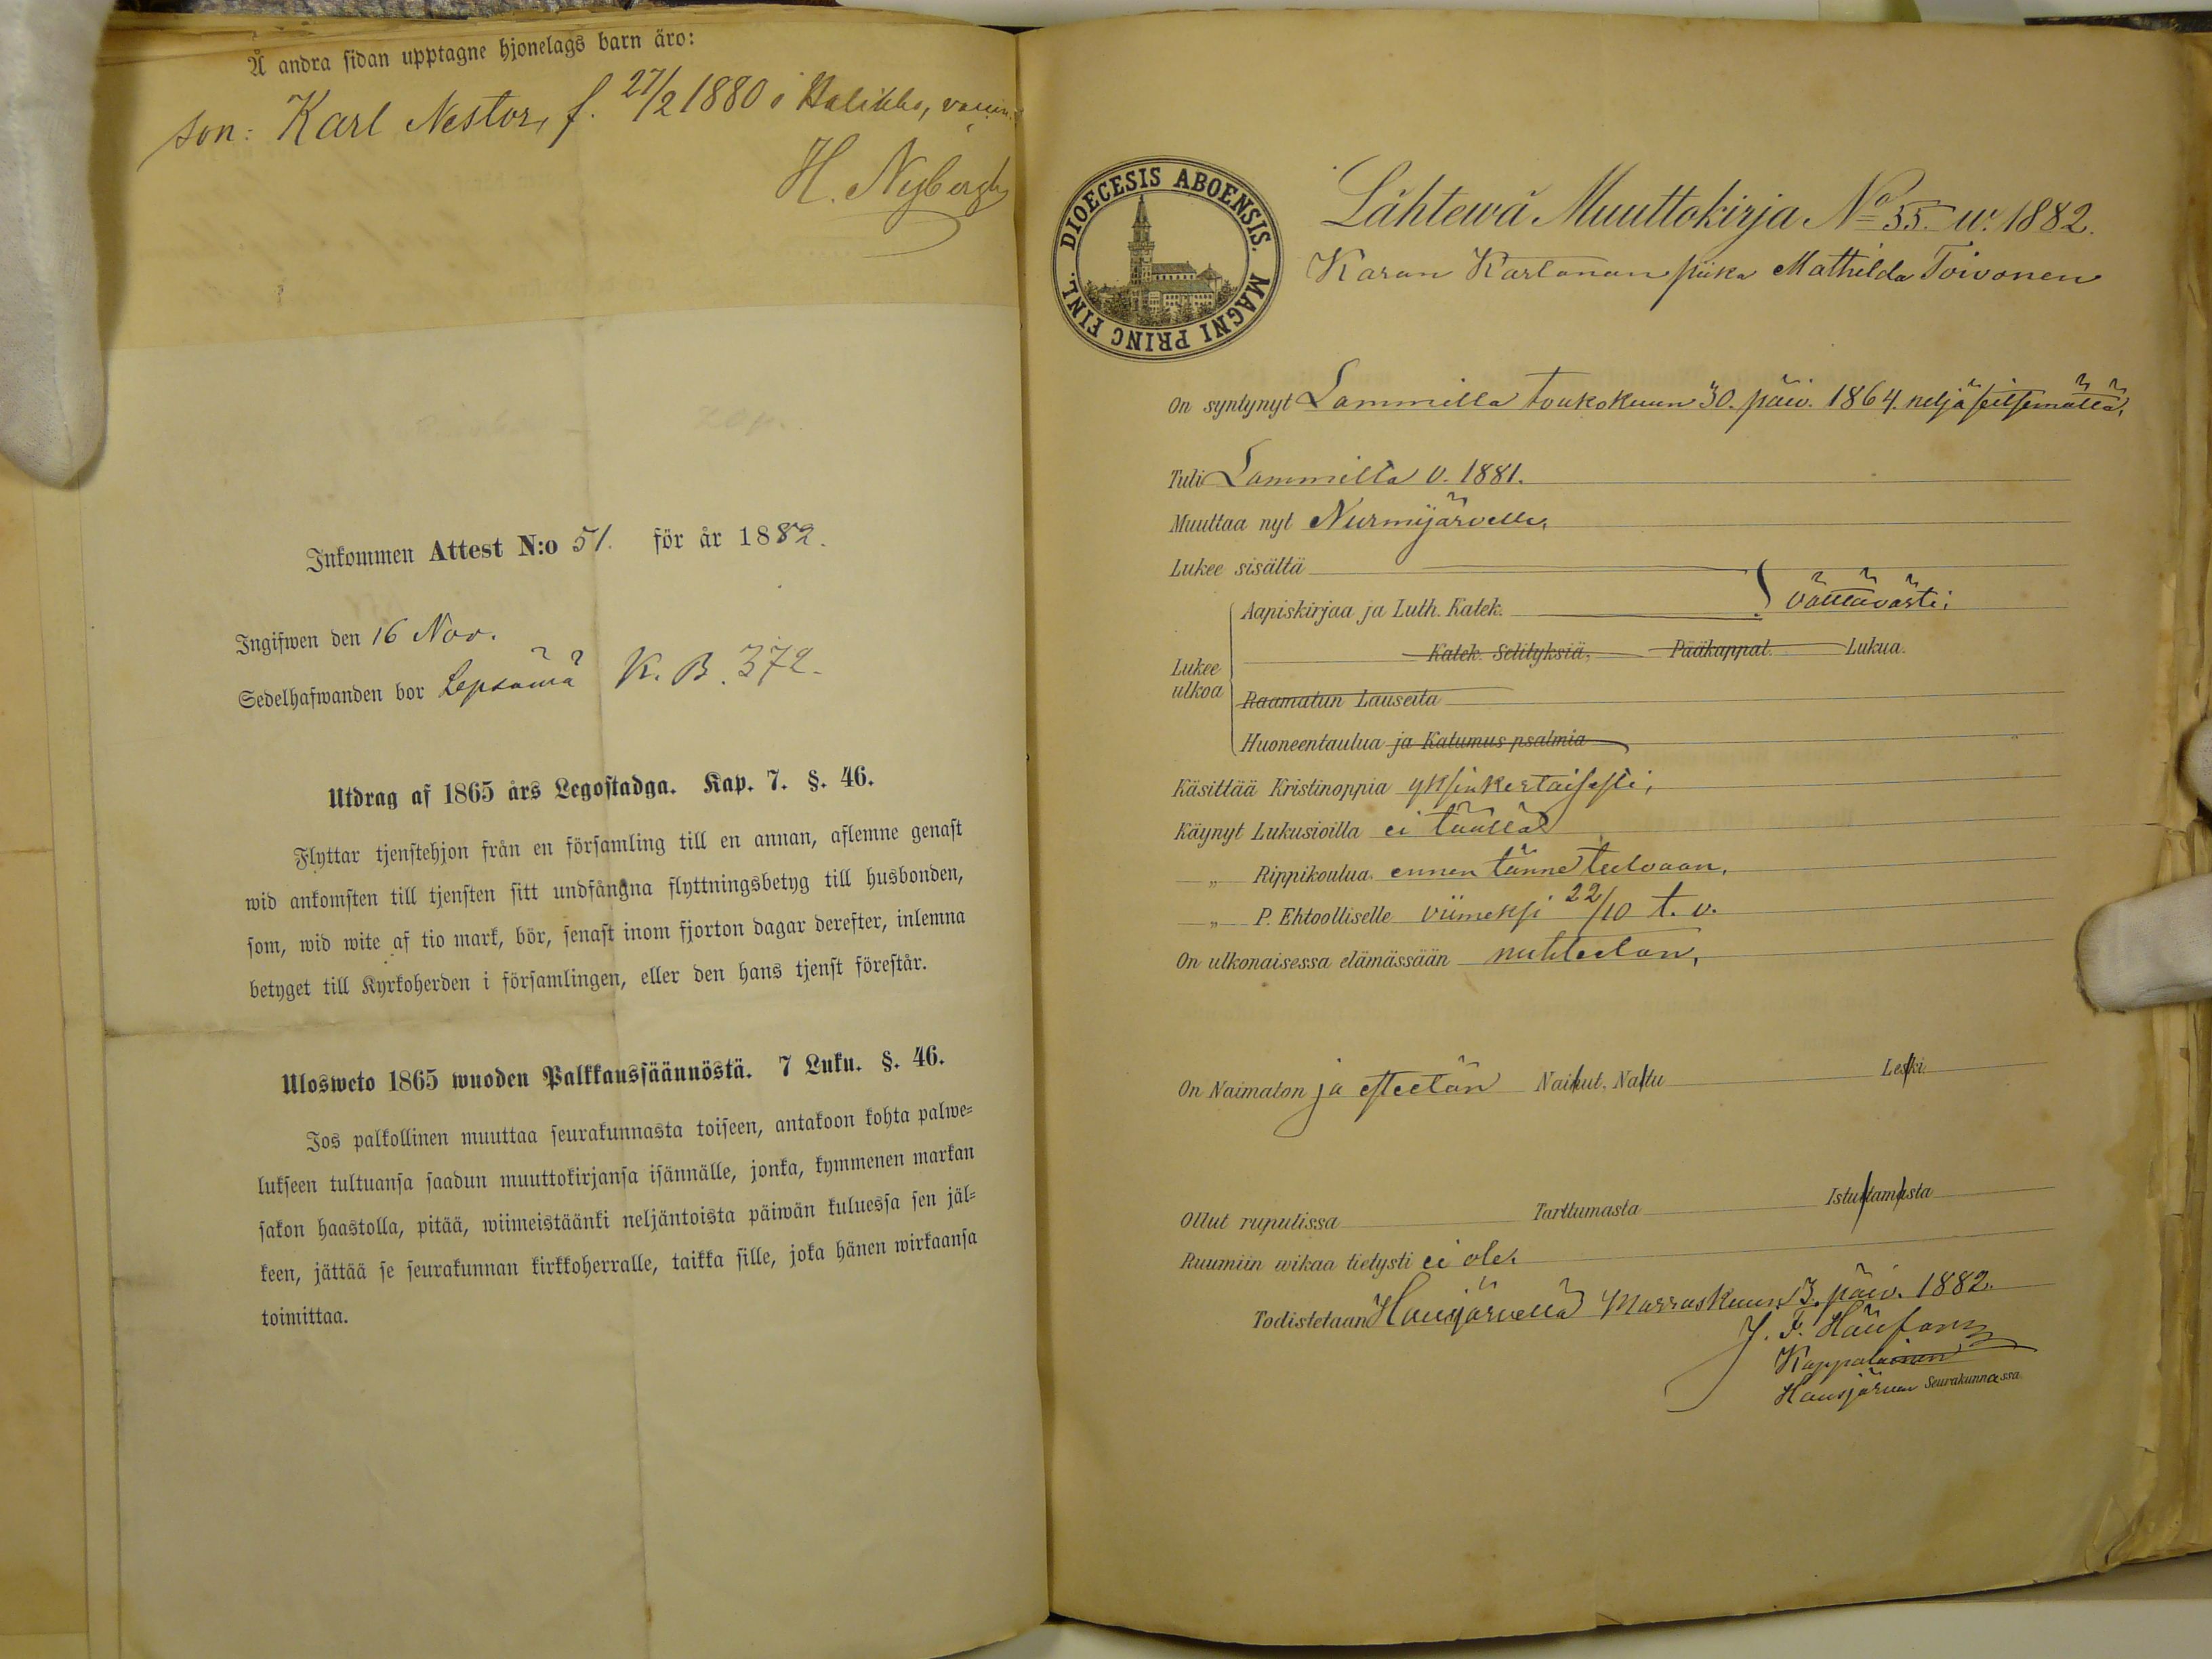 Å andra sidan upptagne hjonelags barn äro:
son: Karl Nestor, f. 27/2 1880 i Halikko, vaccin.
H. Nybergh
Inkommen Attest N:o 51. för år 1882.
Ingifwen den 16 Nov.
Sedelhafwanden bor Lepsämä K. B. 372.
Utdrag af 1865 års Legostadga. Kap. 7. §. 46.
Flyttar tjenstehjon från en församling till en annan, aflemne genast
wid ankomsten till tjensten sitt undfångna flyttningsbetyg till husbonden,
som, wid wite af tio mark, bör, senast inom fjorton dagar derefter, inlemna
betyget till Kyrkoherden i församlingen, eller den hans tjenst förestår.
Ulosweto 1865 wuoden Palkkaussäännöstä. 7 Luku. §. 46.
Jos palkollinen muuttaa seurakunnasta toiseen, antakoon kohta palwe-
lukseen tultuansa saadun muuttokirjansa isännälle, jonka, kymmenen markan
sakon haastolla, pitää, wiimeistäänki neljäntoista päiwän kuluessa sen jäl-
keen, jättää se seurakunnan kirkkoherralle, taikka sille, joka hänen wirkaansa
toimittaa.
DIOECESIS ABOENSIS. MAGNI PRINC FINL.
Lähtewä Muuttokirja No 55. w. 1882.
Karan Kartanon piika Mathilda Toivonen
On syntynyt Lammilla toukokuun 30. päiv. 1864. neljäseitsemättä,
Tuli Lammilta v. 1881.
Muuttaa nyt Nurmijärvelle,
Lukee sisältä
Aapiskirjaa ja Luth. Katek. välttävästi;
Katek. Selityksiä, Pääkappat. Lukua.
Lukee ulkoa
Raamatun Lauseita
Huoneentaulua ja Katumus psalmia
Käsittää Kristinoppia yksinkertaisesti,
Käynyt Lukusioilla ei täällä
„ Rippikoulua ennen tänne tuloaan,
„ P. Ehtoolliselle viimeksi 22/10 t. v.
On ulkonaisessa elämässään nuhteeton,
On Naimaton ja esteetön Naihut. Naitu Leski.
Ollut rupulissa Tarttumasta Istuttamasta
Ruumiin wikaa tietysti ei ole.
Todistetaan Hausjärvellä Marraskuun 3. päiv. 1882.
J. F.
Kappalainen
Hausjärven Seurakunnassa.